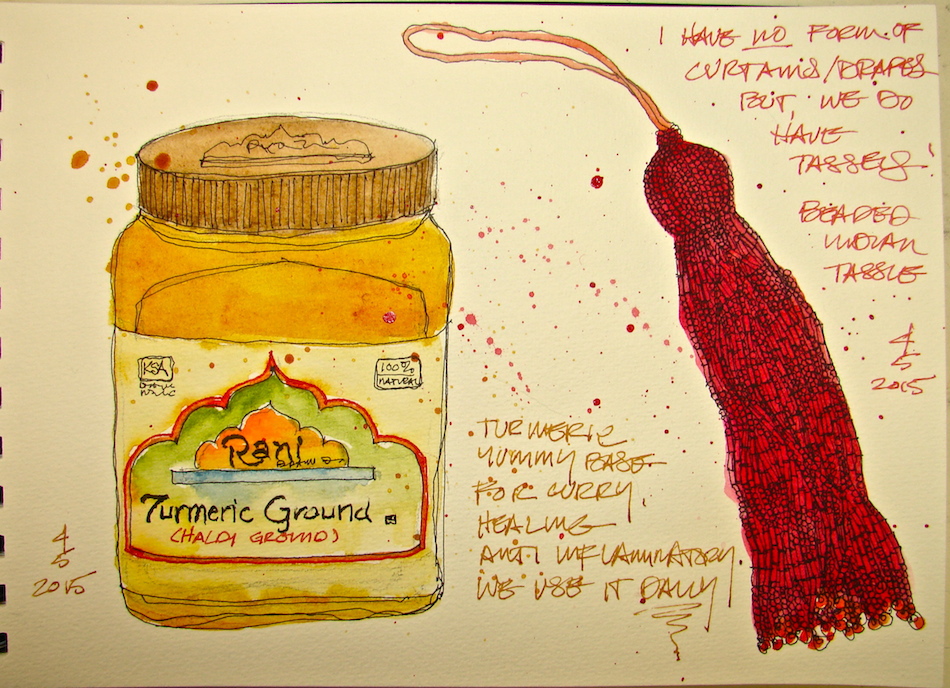 Rani
KSA
100%
NATURAL
Rani
BRAND
Turmeric Ground
(HALDI GROUND)
4/5
2015
TURMERIC
YUMMY BASE
FOR CURRY,
HEALING
ANTI INFLAMMATORY.
WE USE IT DAILY
I HAVE NO FORM OF
CURTAINS/DRAPES
BUT, WE DO
HAVE
TASSELS!
BEADED
INDIAN
TASSLE
4/5
2015